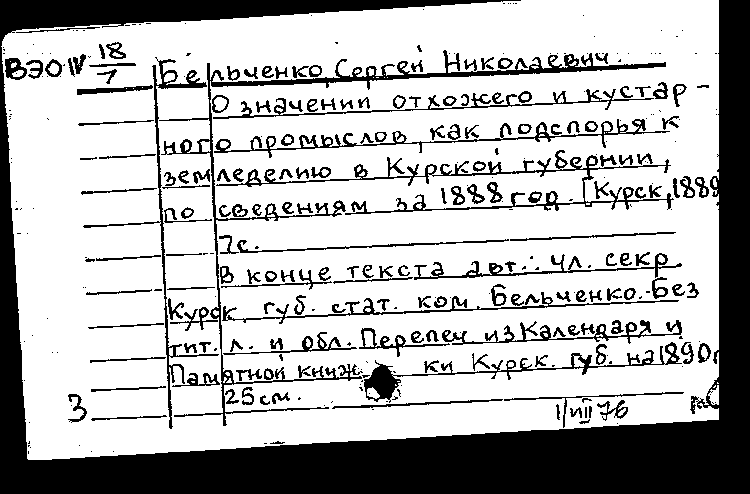 ВЭО IV 18/7 Бельченко, Сергей Николаевич.
О значении отхожего и кустар-
ного промыслов, как подспорья к
земледелию в Курской губернии,
по сведениям за 1888 год. [Курск, 1889
7с.
В конце текста авт.: Чл. секр.
Курск. губ. стат. ком. Бельченко.-Без
тит. л. и обл. Перепеч из Календаря и
Памятной книжки Курск. губ. на 1890г
25см.
3
1/VIII 76